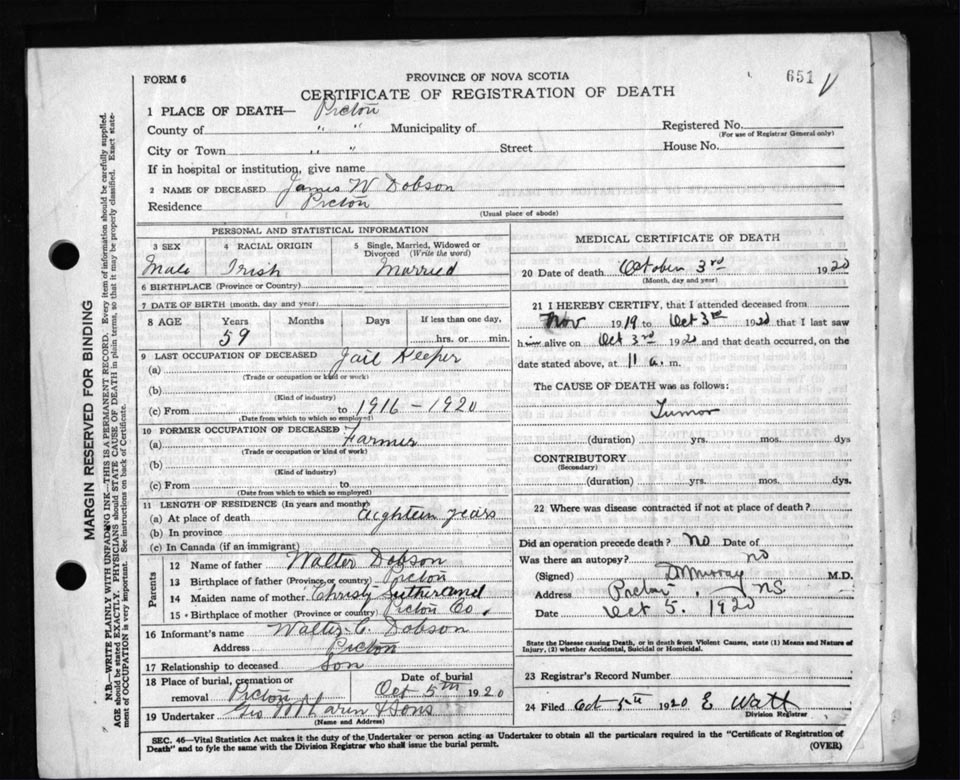 FORM 6
PROVINCE OF NOVA SCOTIA
651
CERTIFICATE OF REGISTRATION OF DEATH
1 PLACE OF DEATH— Pictou
County of " " Municipality of
Registered No.
(For use of Registrar General only)
City or Town " " Street
House No.
If in hospital or institution, give name
2 NAME OF DECEASED James W Dobson
Residence Pictou
(Usual place of abode)
PERSONAL AND STATISTICAL INFORMATION
3 SEX Male
4 RACIAL ORIGIN Irish
5 Single, Married, Widowed or Divorced (Write the word) Married
6 BIRTHPLACE (Province or Country)
7 DATE OF BIRTH (month, day and year)
8 AGE Years Months Days If less than one day,
59 hrs. or min.
9 LAST OCCUPATION OF DECEASED
(a) Jail Keeper
(Trade or occupation or kind or work)
(b)
(Kind of industry)
(c) From to 1916 – 1920
(Date from which to which so employed)
10 FORMER OCCUPATION OF DECEASED
(a) Farmer
(Trade or occupation or kind of work)
(b)
(Kind of industry)
(c) From to
(Date from which to which so employed)
11 LENGTH OF RESIDENCE (In years and months)
(a) At place of death eighteen years
(b) In province
(c) In Canada (if an immigrant)
Parents
12 Name of father Walter Dobson
13 Birthplace of father (Province or country) Pictou
14 Maiden name of mother Christy Sutherland
15 Birthplace of mother (Province or country) Pictou Co.
16 Informant's name Walter C. Dobson
Address Pictou
17 Relationship to deceased Son
18 Place of burial, cremation or removal Pictou
Date of burial Oct 5th 1920
19 Undertaker Geo & Sons
(Name and Address)
MEDICAL CERTIFICATE OF DEATH
20 Date of death October 3rd 1920
(Month, day and year)
21 I HEREBY CERTIFY, that I attended deceased from
Nov 1919 to Oct 3rd 1920 that I last saw
him alive on Oct 3rd 1920 and that death occurred, on the
date stated above, at 11 a. m.
The CAUSE OF DEATH was as follows:
Tumor
(duration) yrs. mos. dys
CONTRIBUTORY
(Secondary)
(duration) yrs. mos. dys.
22 Where was disease contracted if not at place of death?
Did an operation precede death? no Date of
Was there an autopsy? no
(Signed) Murray M.D.
Address Pictou, NS.
Date Oct 5. 1920
State the Disease causing Death, or in death from Violent Causes, state (1) Means and Nature of
Injury, (2) whether Accidental, Suicidal or Homicidal.
23 Registrar's Record Number
24 Filed Oct 5th 1920 E Watt
Division Registrar
SEC. 46—Vital Statistics Act makes it the duty of the Undertaker or person acting as Undertaker to obtain all the particulars required in the "Certificate of Registration of
Death" and to fyle the same with the Division Registrar who shall issue the burial permit.
(OVER)
MARGIN RESERVED FOR BINDING
N.B.—WRITE PLAINLY WITH UNFADING INK—THIS IS A PERMANENT RECORD. Every item of information should be carefully supplied.
AGE should be stated EXACTLY. PHYSICIANS should STATE CAUSE OF DEATH in plain terms, so that it may be properly classified. Exact state-
ment of OCCUPATION is very important. See instructions on back of Certificate.